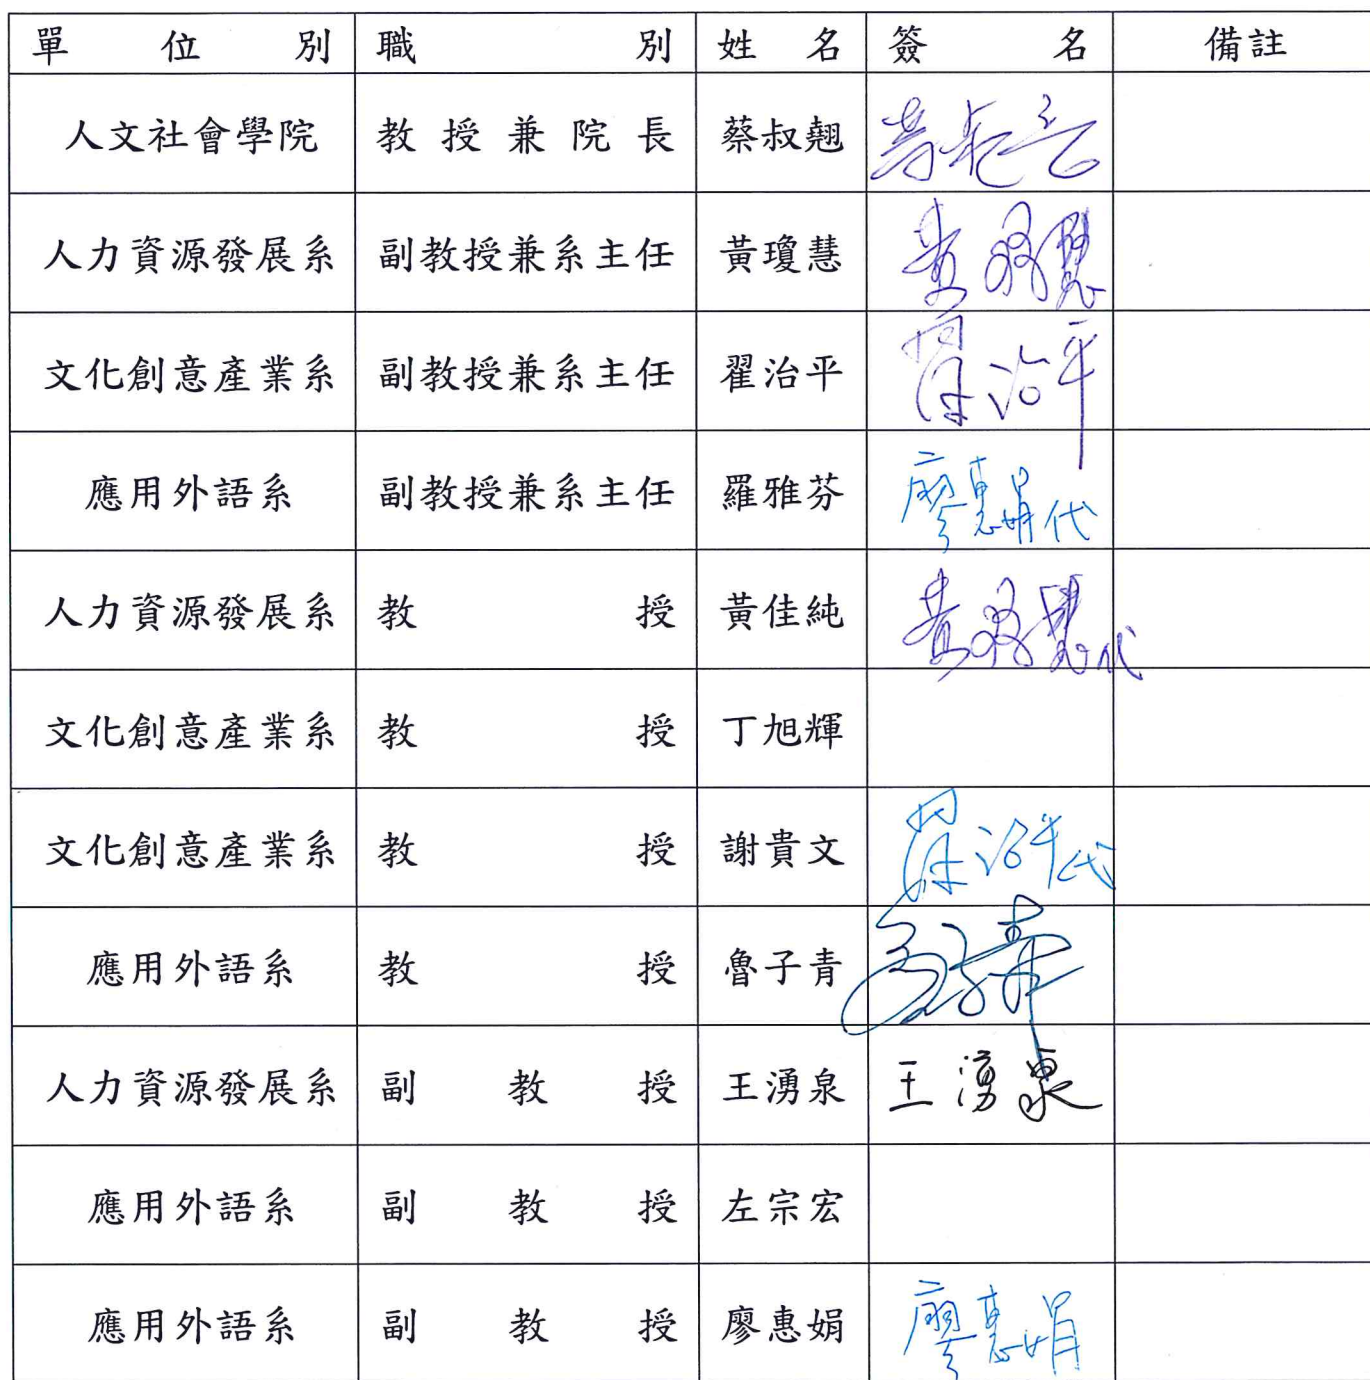 單位別 職別 姓名 簽名 備註
人文社會學院 教授兼院長 蔡叔翹
人力資源發展系 副教授兼系主任 黃瓊慧 黃瓊慧
文化創意產業系 副教授兼系主任 翟治平 翟治平
應用外語系 副教授兼系主任 羅雅芬 廖惠娟代
人力資源發展系 教授 黃佳純 黃瓊慧代
文化創意產業系 教授 丁旭輝
文化創意產業系 教授 謝貴文 翟治平代
應用外語系 教授 魯子青
人力資源發展系 副教授 王湧泉 王湧泉
應用外語系 副教授 左宗宏
應用外語系 副教授 廖惠娟 廖惠娟